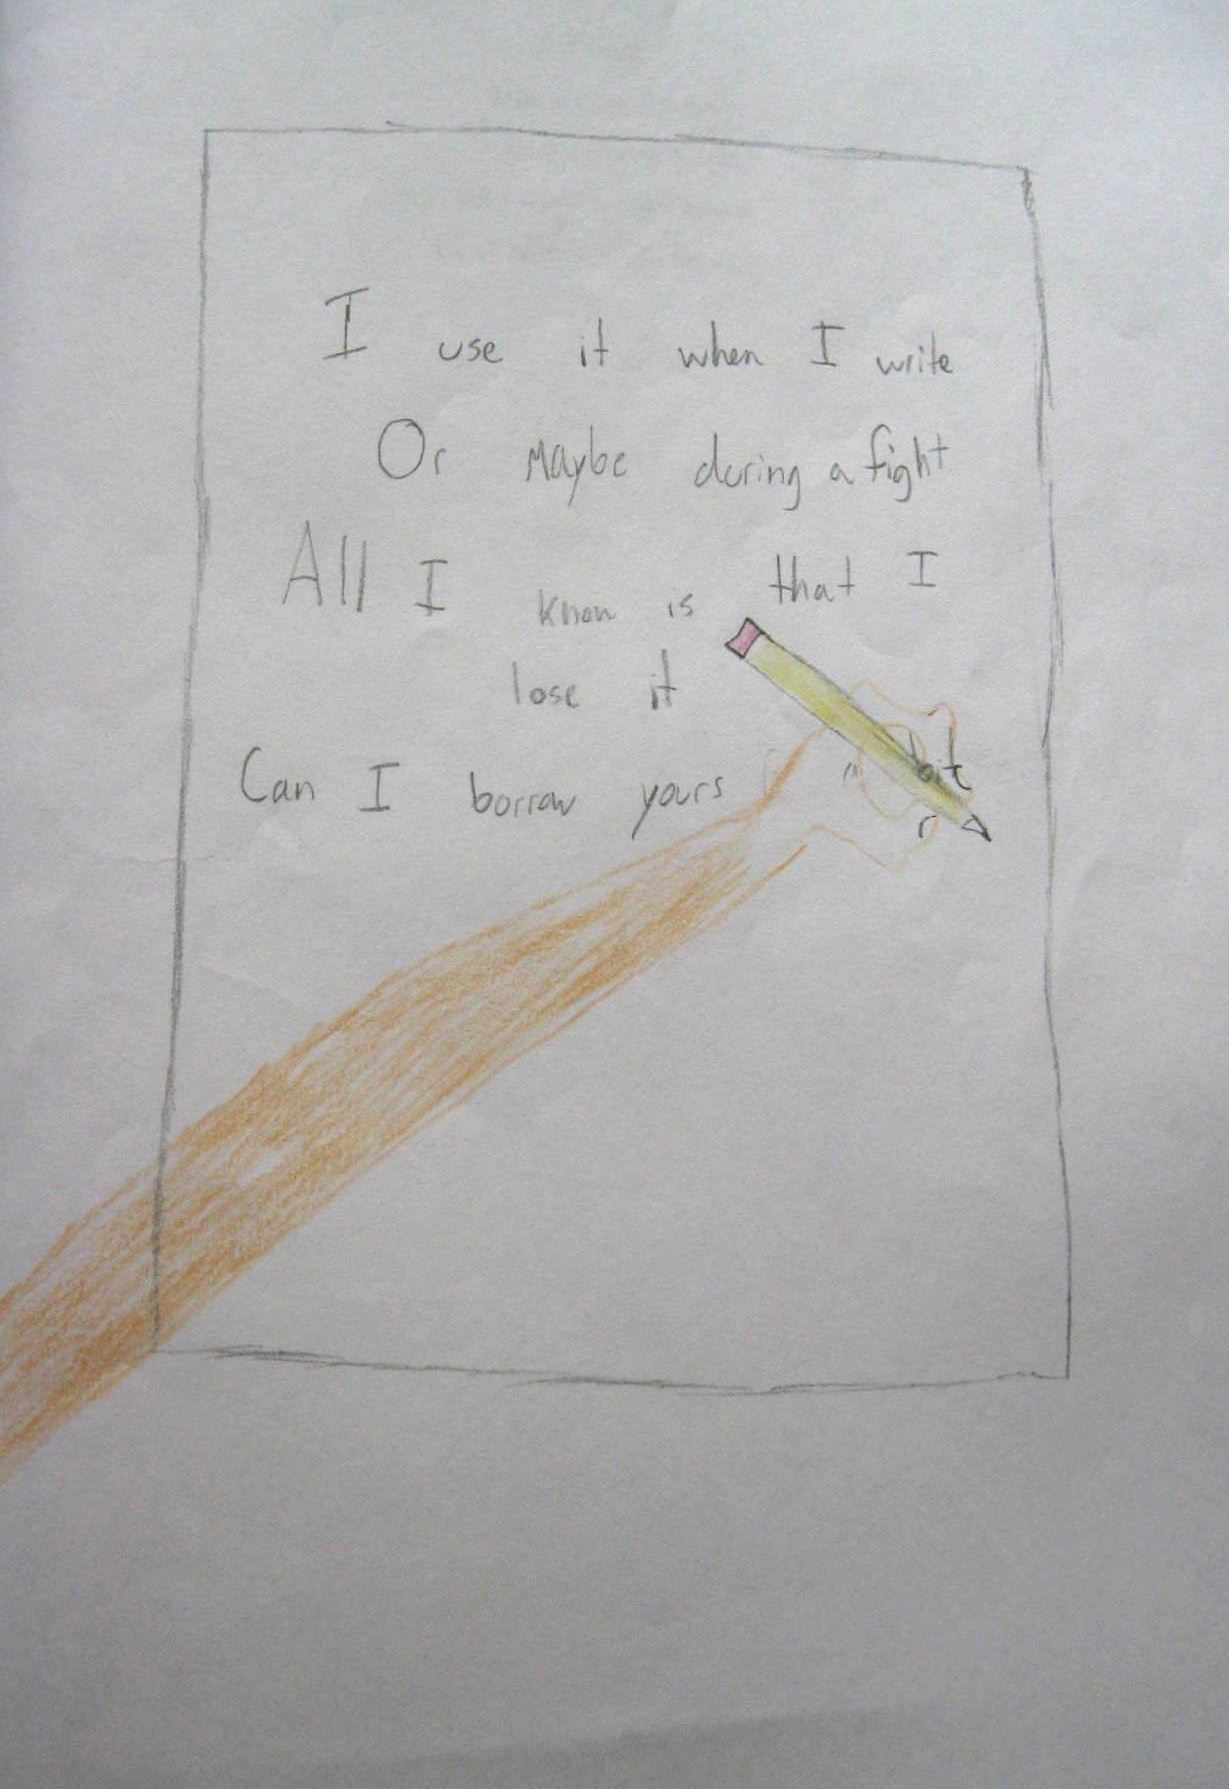 I use it when I write
Or Maybe during a fight
All I know is that I
lose it
Can I borrow yours